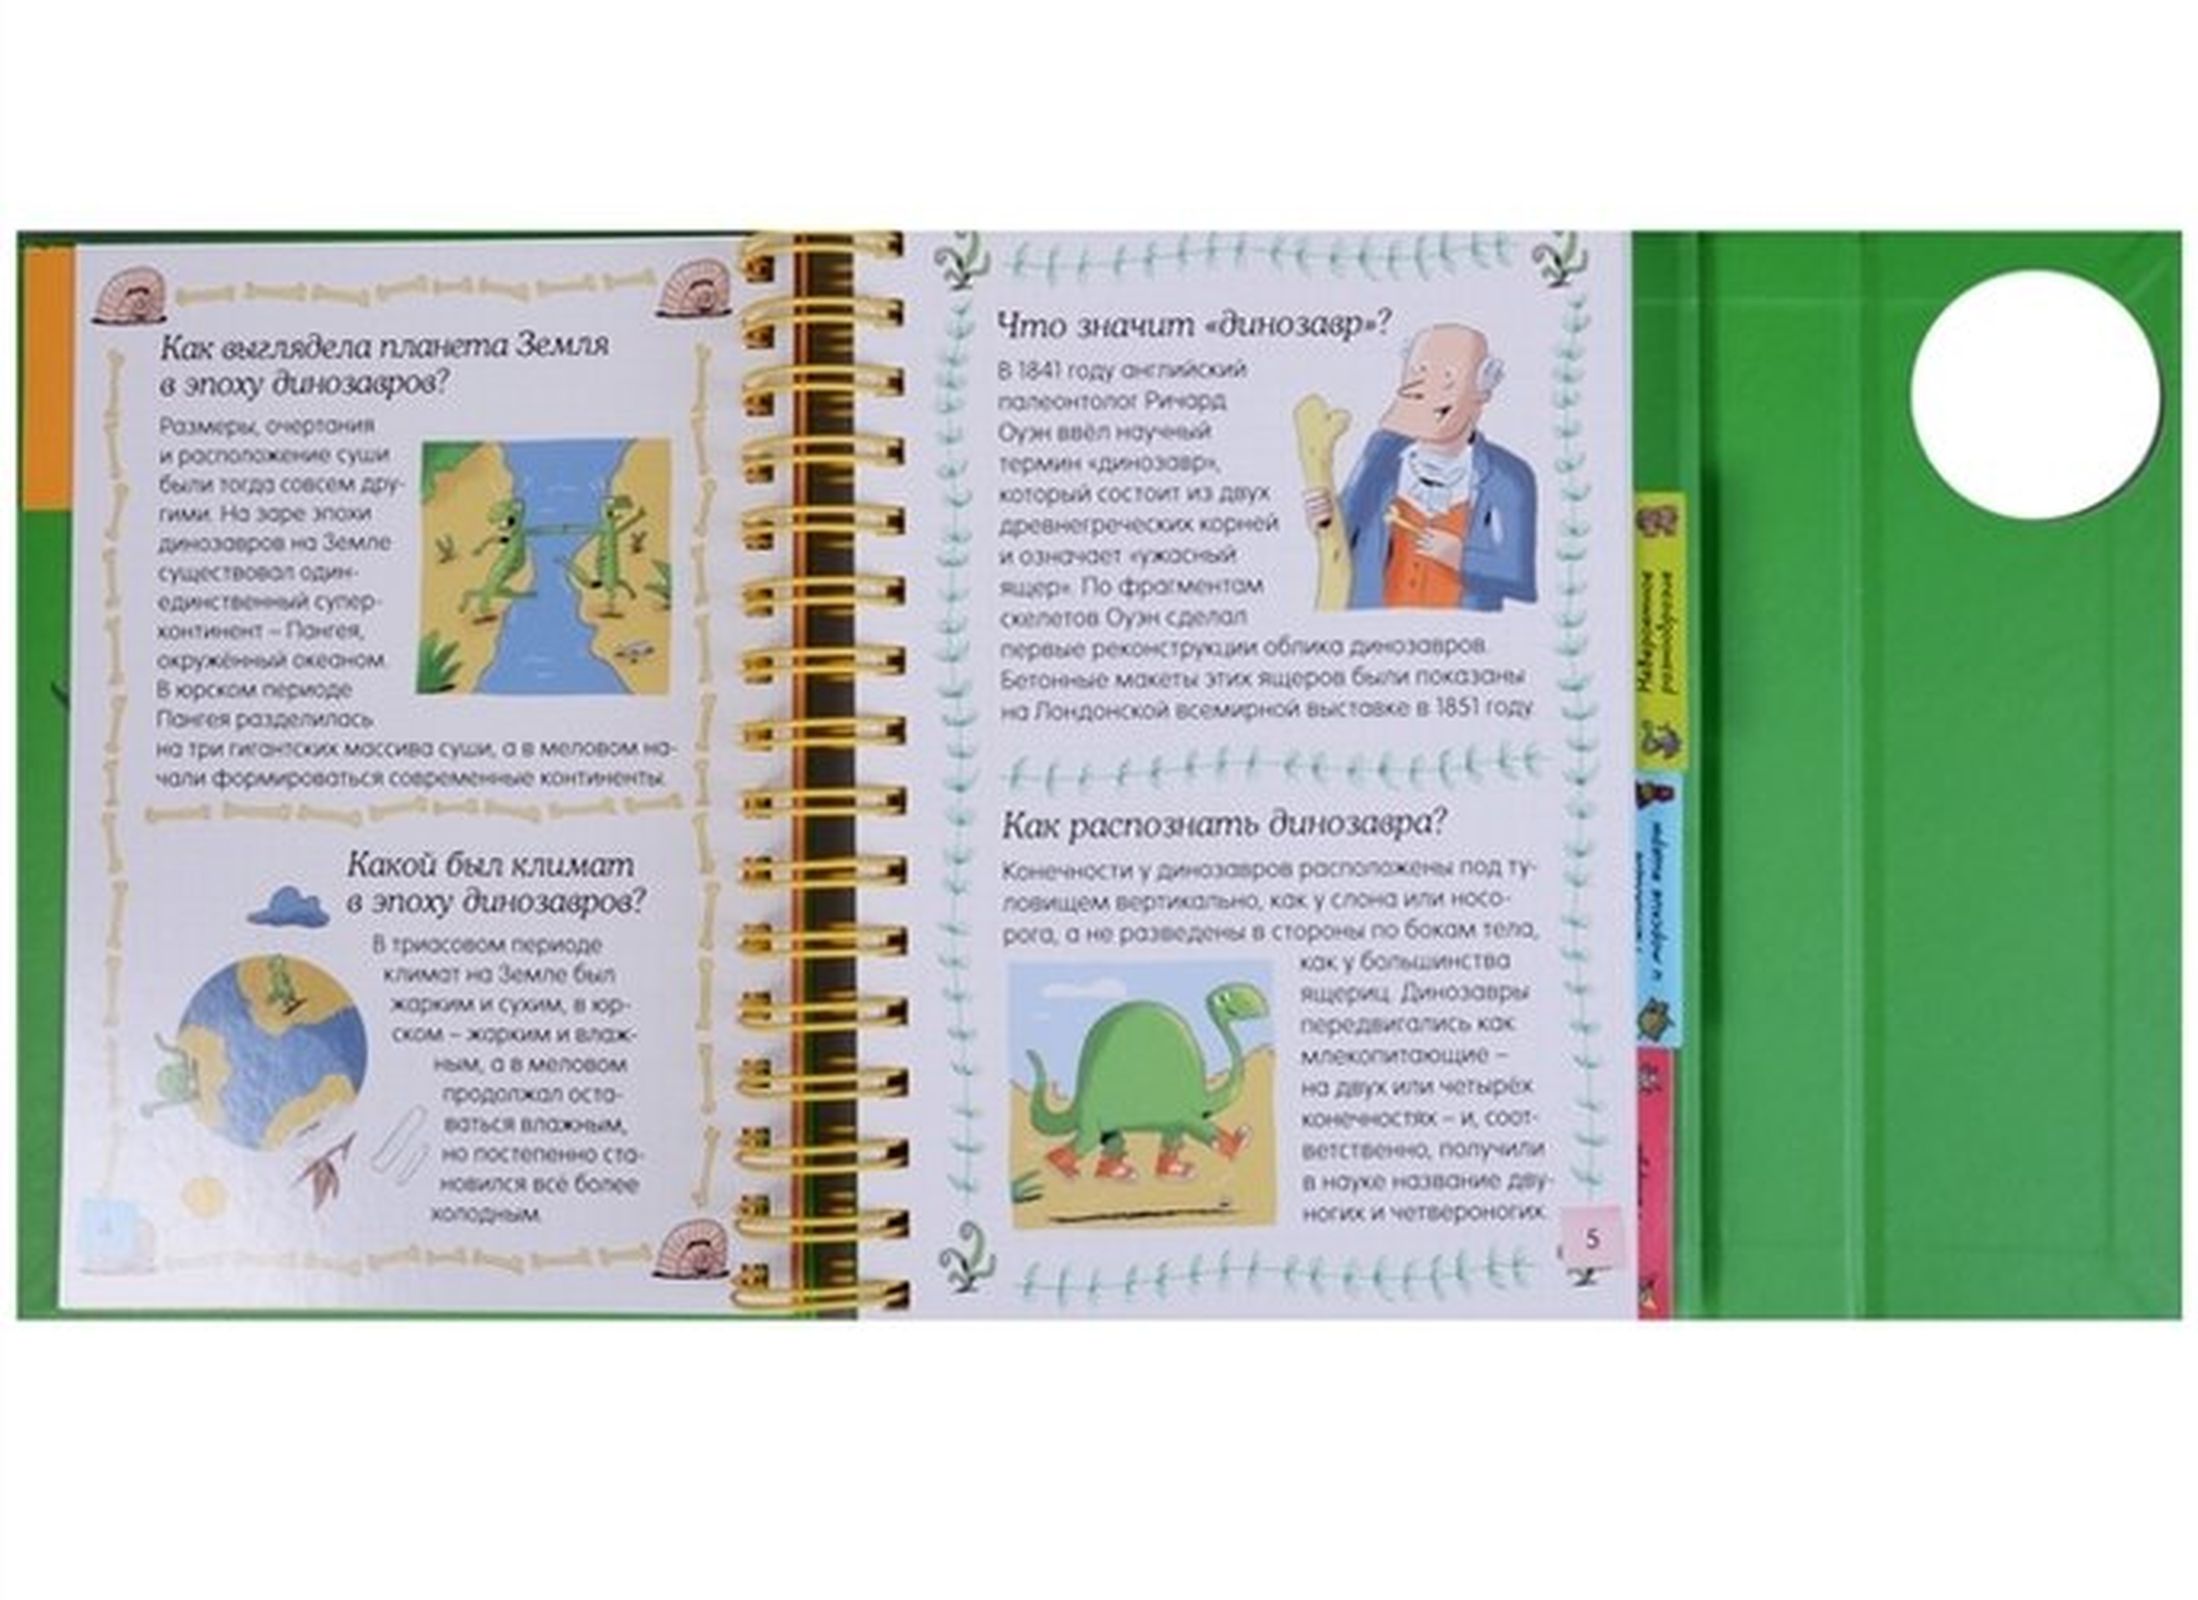 Как выглядела планета Земля
в эпоху динозавров?
Размеры, очертания
и расположение суши
были тогда совсем дру-
гими. На заре эпохи
динозавров на Земле
существовал один-
единственный супер-
континент – Пангея,
окружённый океаном.
В юрском периоде
Пангея разделилась
на три гигантских массива суши, а в меловом на-
чали формироваться современные континенты.
Какой был климат
в эпоху динозавров?
В триасовом периоде
климат на Земле был
жарким и сухим, в юр-
ском – жарким и влаж-
ным, а в меловом
продолжал оста-
ваться влажным,
но постепенно ста-
новился всё более
холодным.
4
Что значит «динозавр»?
В 1841 году английский
палеонтолог Ричард
Оуэн ввёл научный
термин «динозавр»,
который состоит из двух
древнегреческих корней
и означает «ужасный
ящер». По фрагментам
скелетов Оуэн сделал
первые реконструкции облика динозавров.
Бетонные макеты этих ящеров были показаны
на Лондонской всемирной выставке в 1851 году.
Как распознать динозавра?
Конечности у динозавров расположены под ту-
ловищем вертикально, как у слона или носо-
рога, а не разведены в стороны по бокам тела,
как у большинства
ящериц. Динозавры
передвигались как
млекопитающие –
на двух или четырёх
конечностях – и, соот-
ветственно, получили
в науке название дву-
ногих и четвероногих.
5
Невероятное
разнообразие